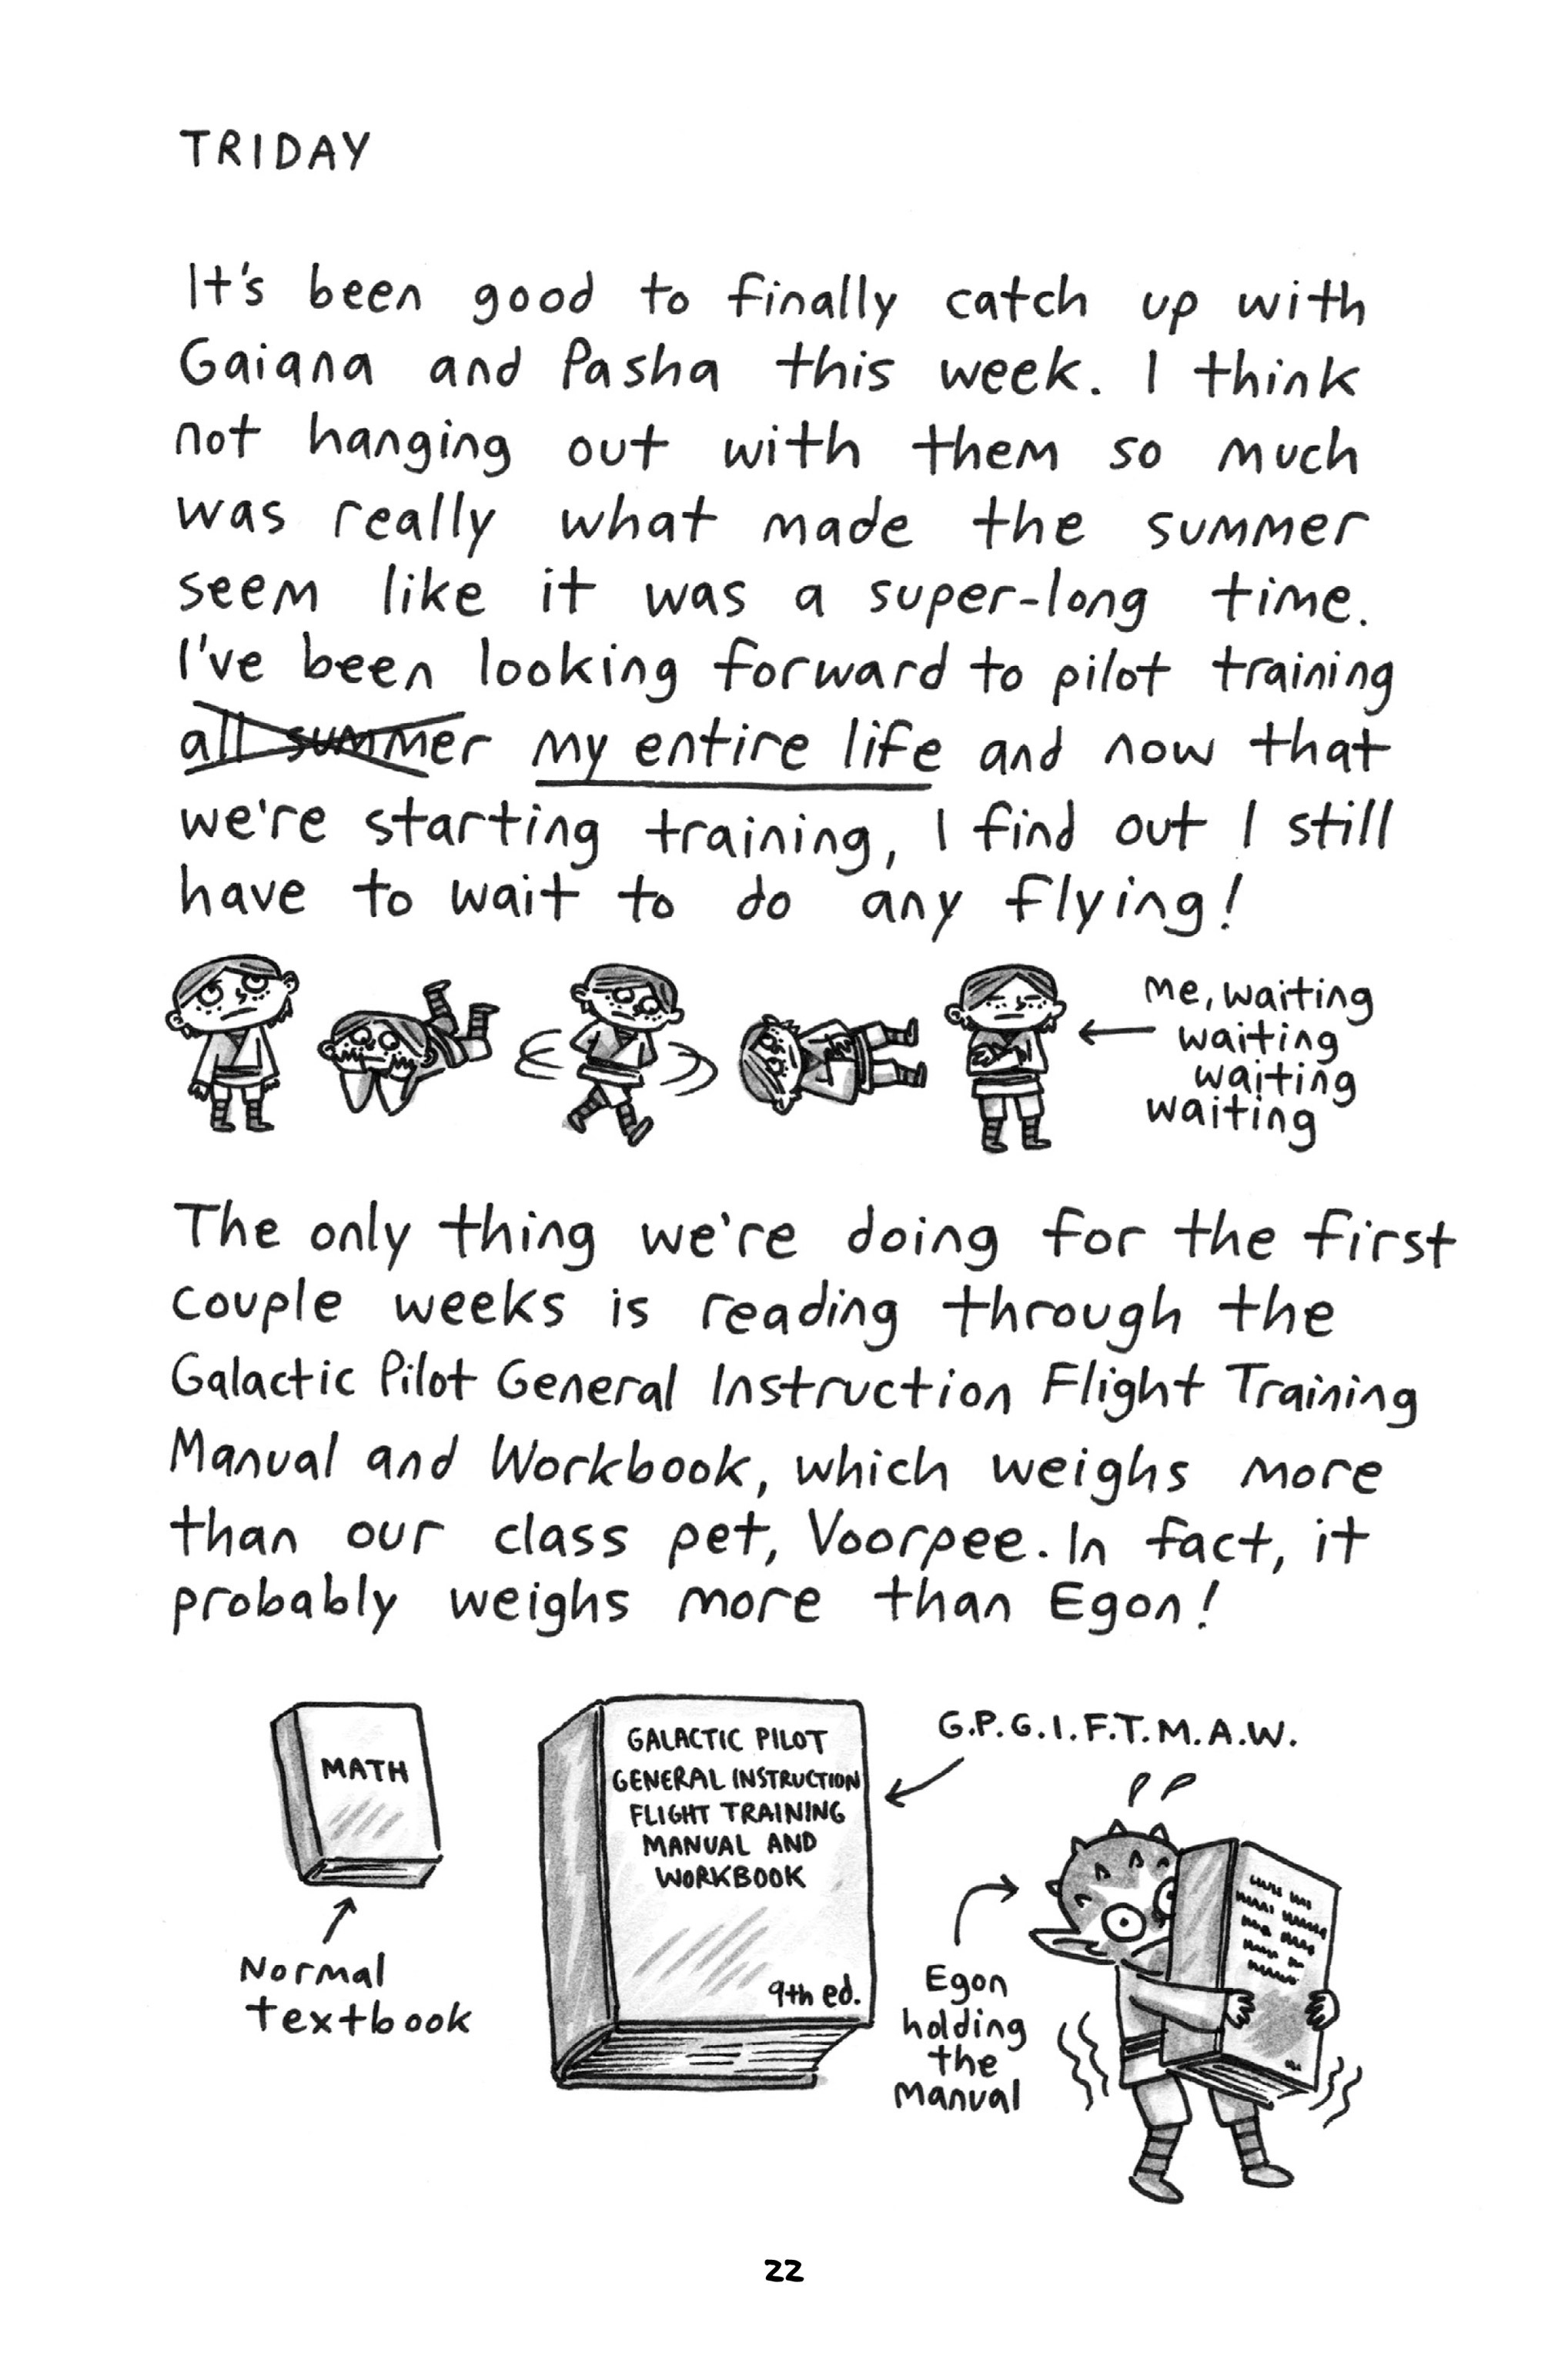 TRIDAY
It's been good to finally catch up with
Gaiana and Pasha this week. I think
not hanging out with them so much
was really what made the summer
seem like it was a super-long time.
I've been looking forward to pilot training
all summer my entire life and now that
we're starting training, I find out I still
have to wait to do any flying!
me, waiting
waiting
waiting
waiting
The only thing we're doing for the first
couple weeks is reading through the
Galactic Pilot General Instruction Flight Training
Manual and Workbook, which weighs more
than our class pet, Voorpee. In fact, it
probably weighs more than Egon!
MATH
Normal
textbook
GALACTIC PILOT
GENERAL INSTRUCTION
FLIGHT TRAINING
MANUAL AND
WORKBOOK
9th ed.
G.P.G.I.F.T.M.A.W.
Egon
holding
the
manual
22